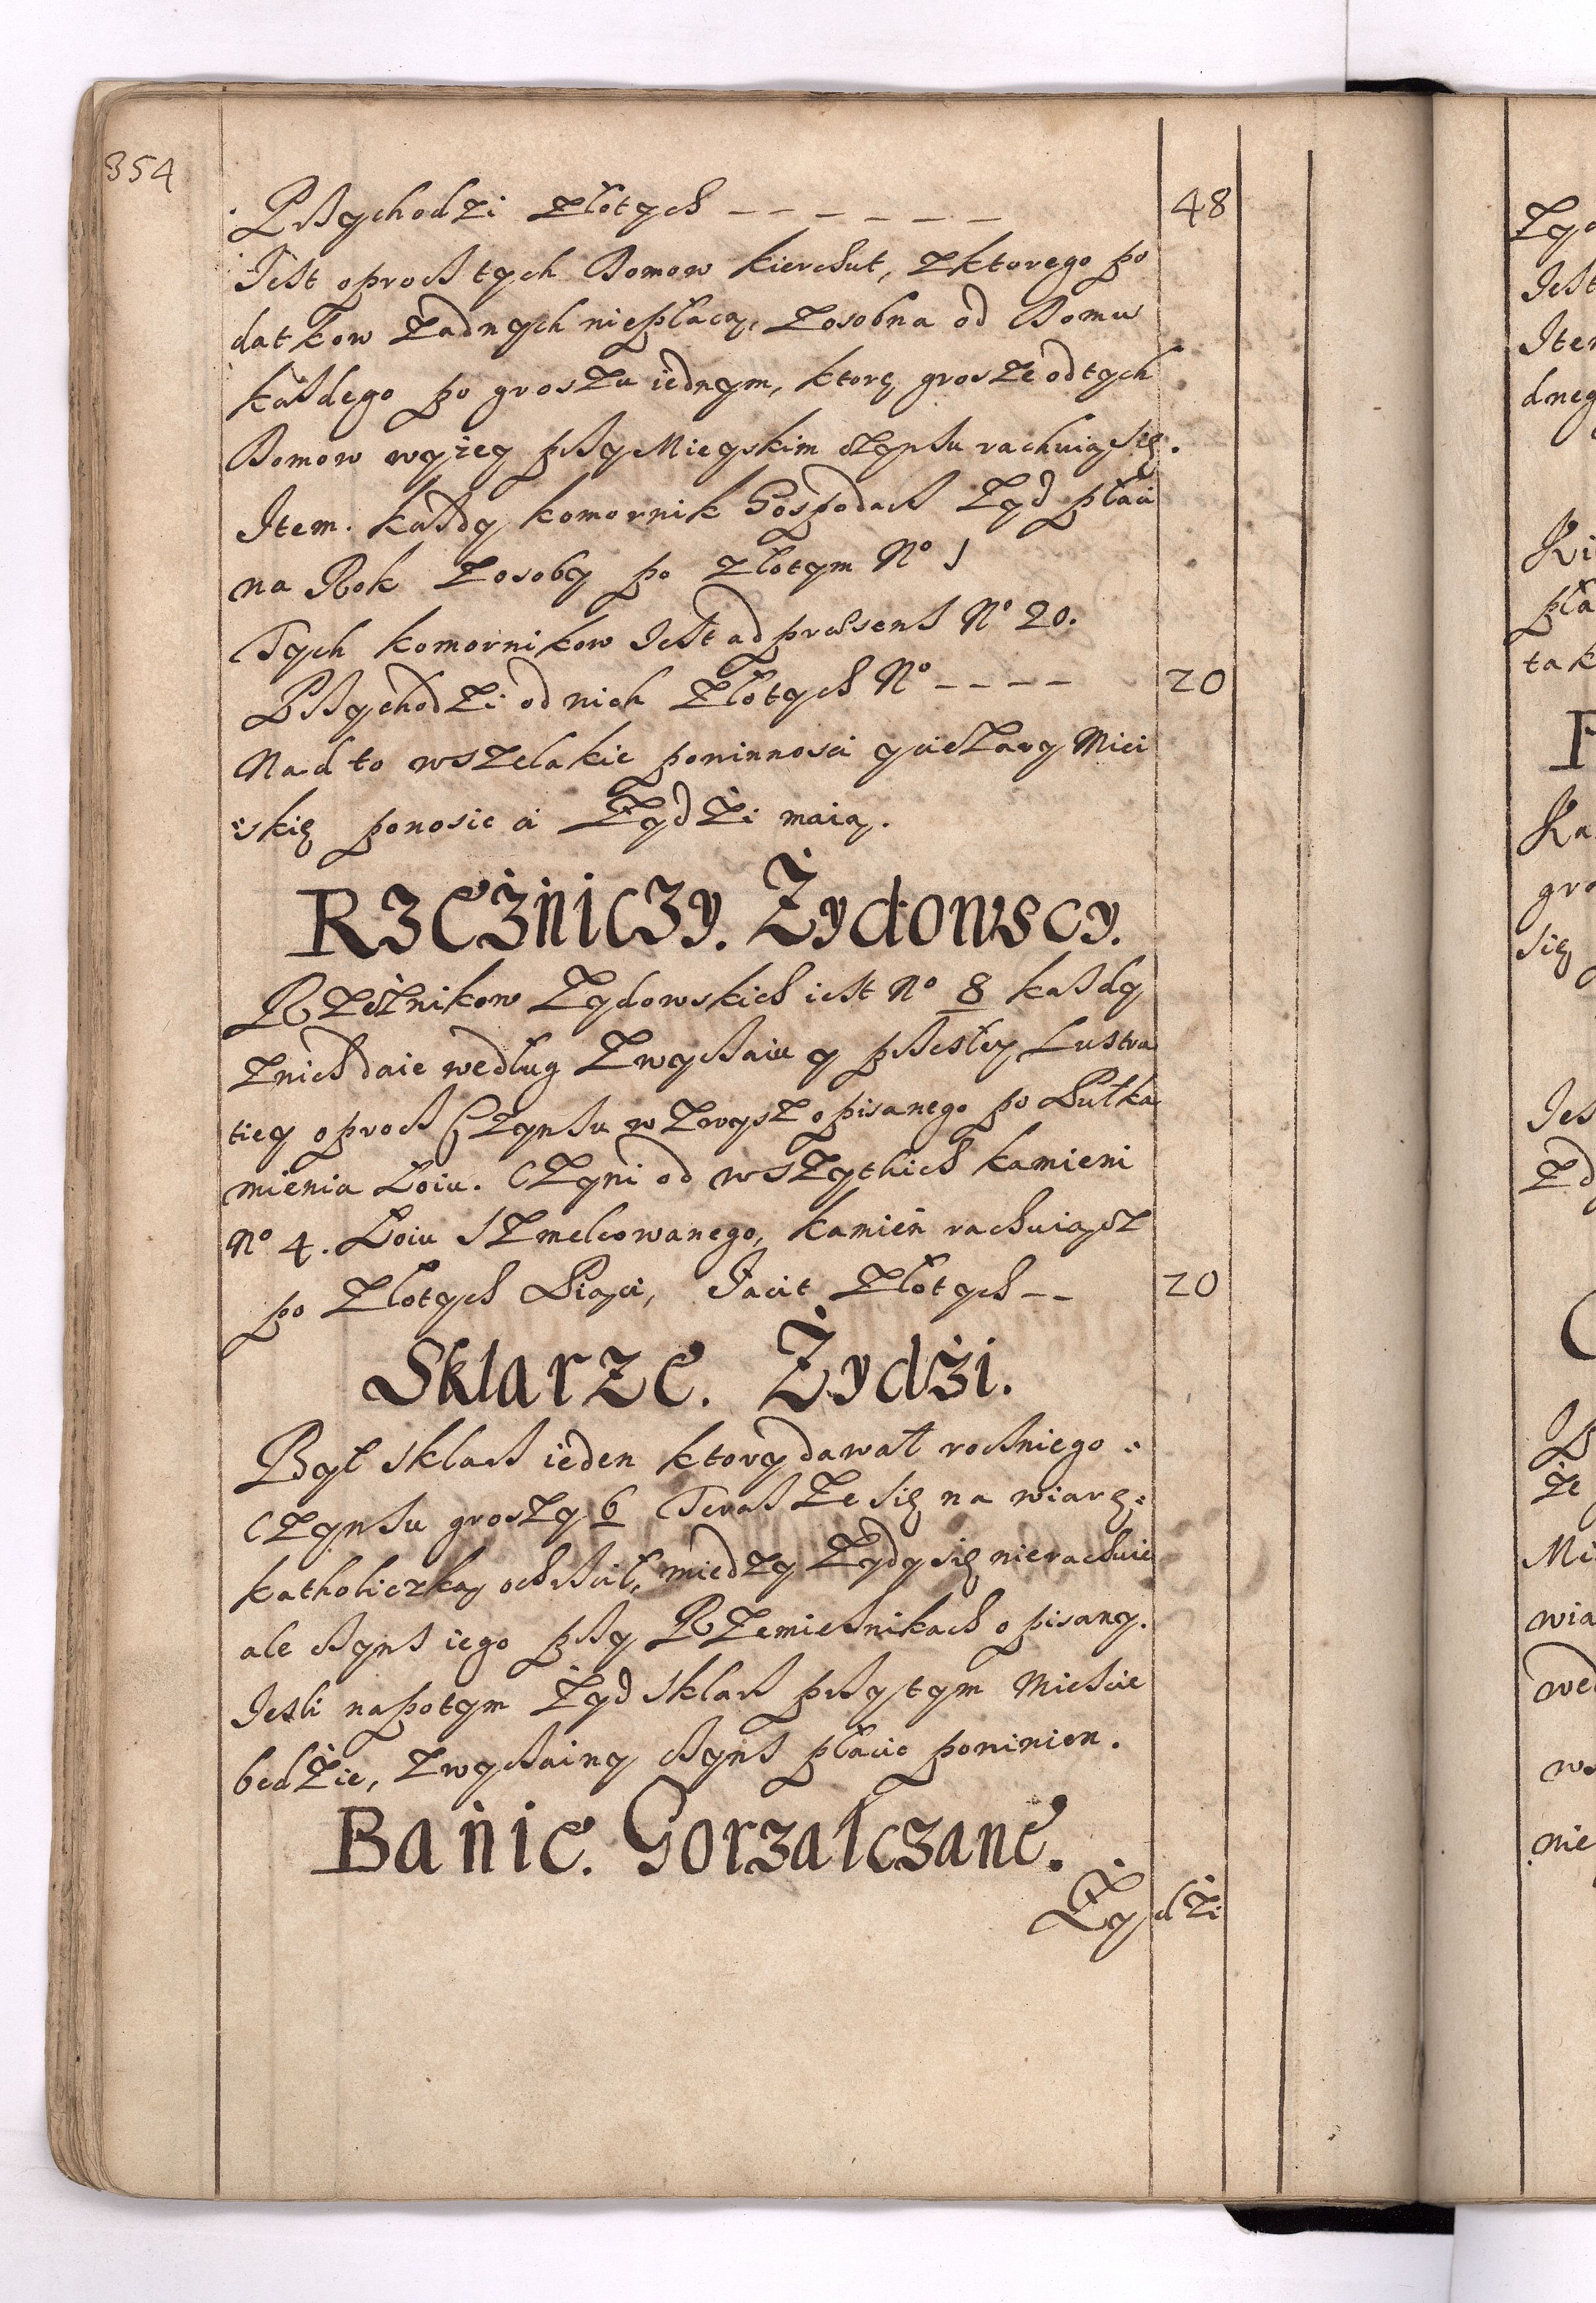 354
Przychodzi złotych — — — — — — 48
Jest oprocz tych Domow kierchut, z ktorego po
datkow żadnych niepłacą, zosobna od Domu
każdego po groszu iednym, ktorę grosze od tych
Domow wyżey przy Mieyskim czynszu rachuią się.
Item. każdy komornik Gospodarz Zyd płaci
na Rok z osoby po złotym No 1
Tych komornikow Jest ad præsens No 20.
Przychodzi od nich złotych No — — — — 20
Nad to wszelakie powinnosci y cieżary Miei
:skię ponosic ci Żydźi maią.
Rzeźniczy. Żydowscy.
Rzeźnikow Zydowskich iest No 8 każdy
z nich daie według zwyczaiu y przeszłey Lustra
tiey oprocz Czynszu wzwysz opisanego po Pułka
mienia Łoiu. Czyni od wszytkich kamieni
No 4. Łoiu szmelcowanego, kamień rachuiącz
po złotych Pięci, Facit złotych — — 20
Sklarze. Żydźi.
Był sklarz ieden ktory dawał rocznego :
czynszu groszy 6 Teraz że się na wiarę :
katholiczką ochrzcił, miedzy Żydy się nierachuie
ale czynsz iego przy Rzemiesnikach opisany.
Jesli napotym Żyd sklarz przy tym Miescie
bedźie, zwyczainy czynsz płacic powinien.
Bańie. Gorzałczane.
Żydźi